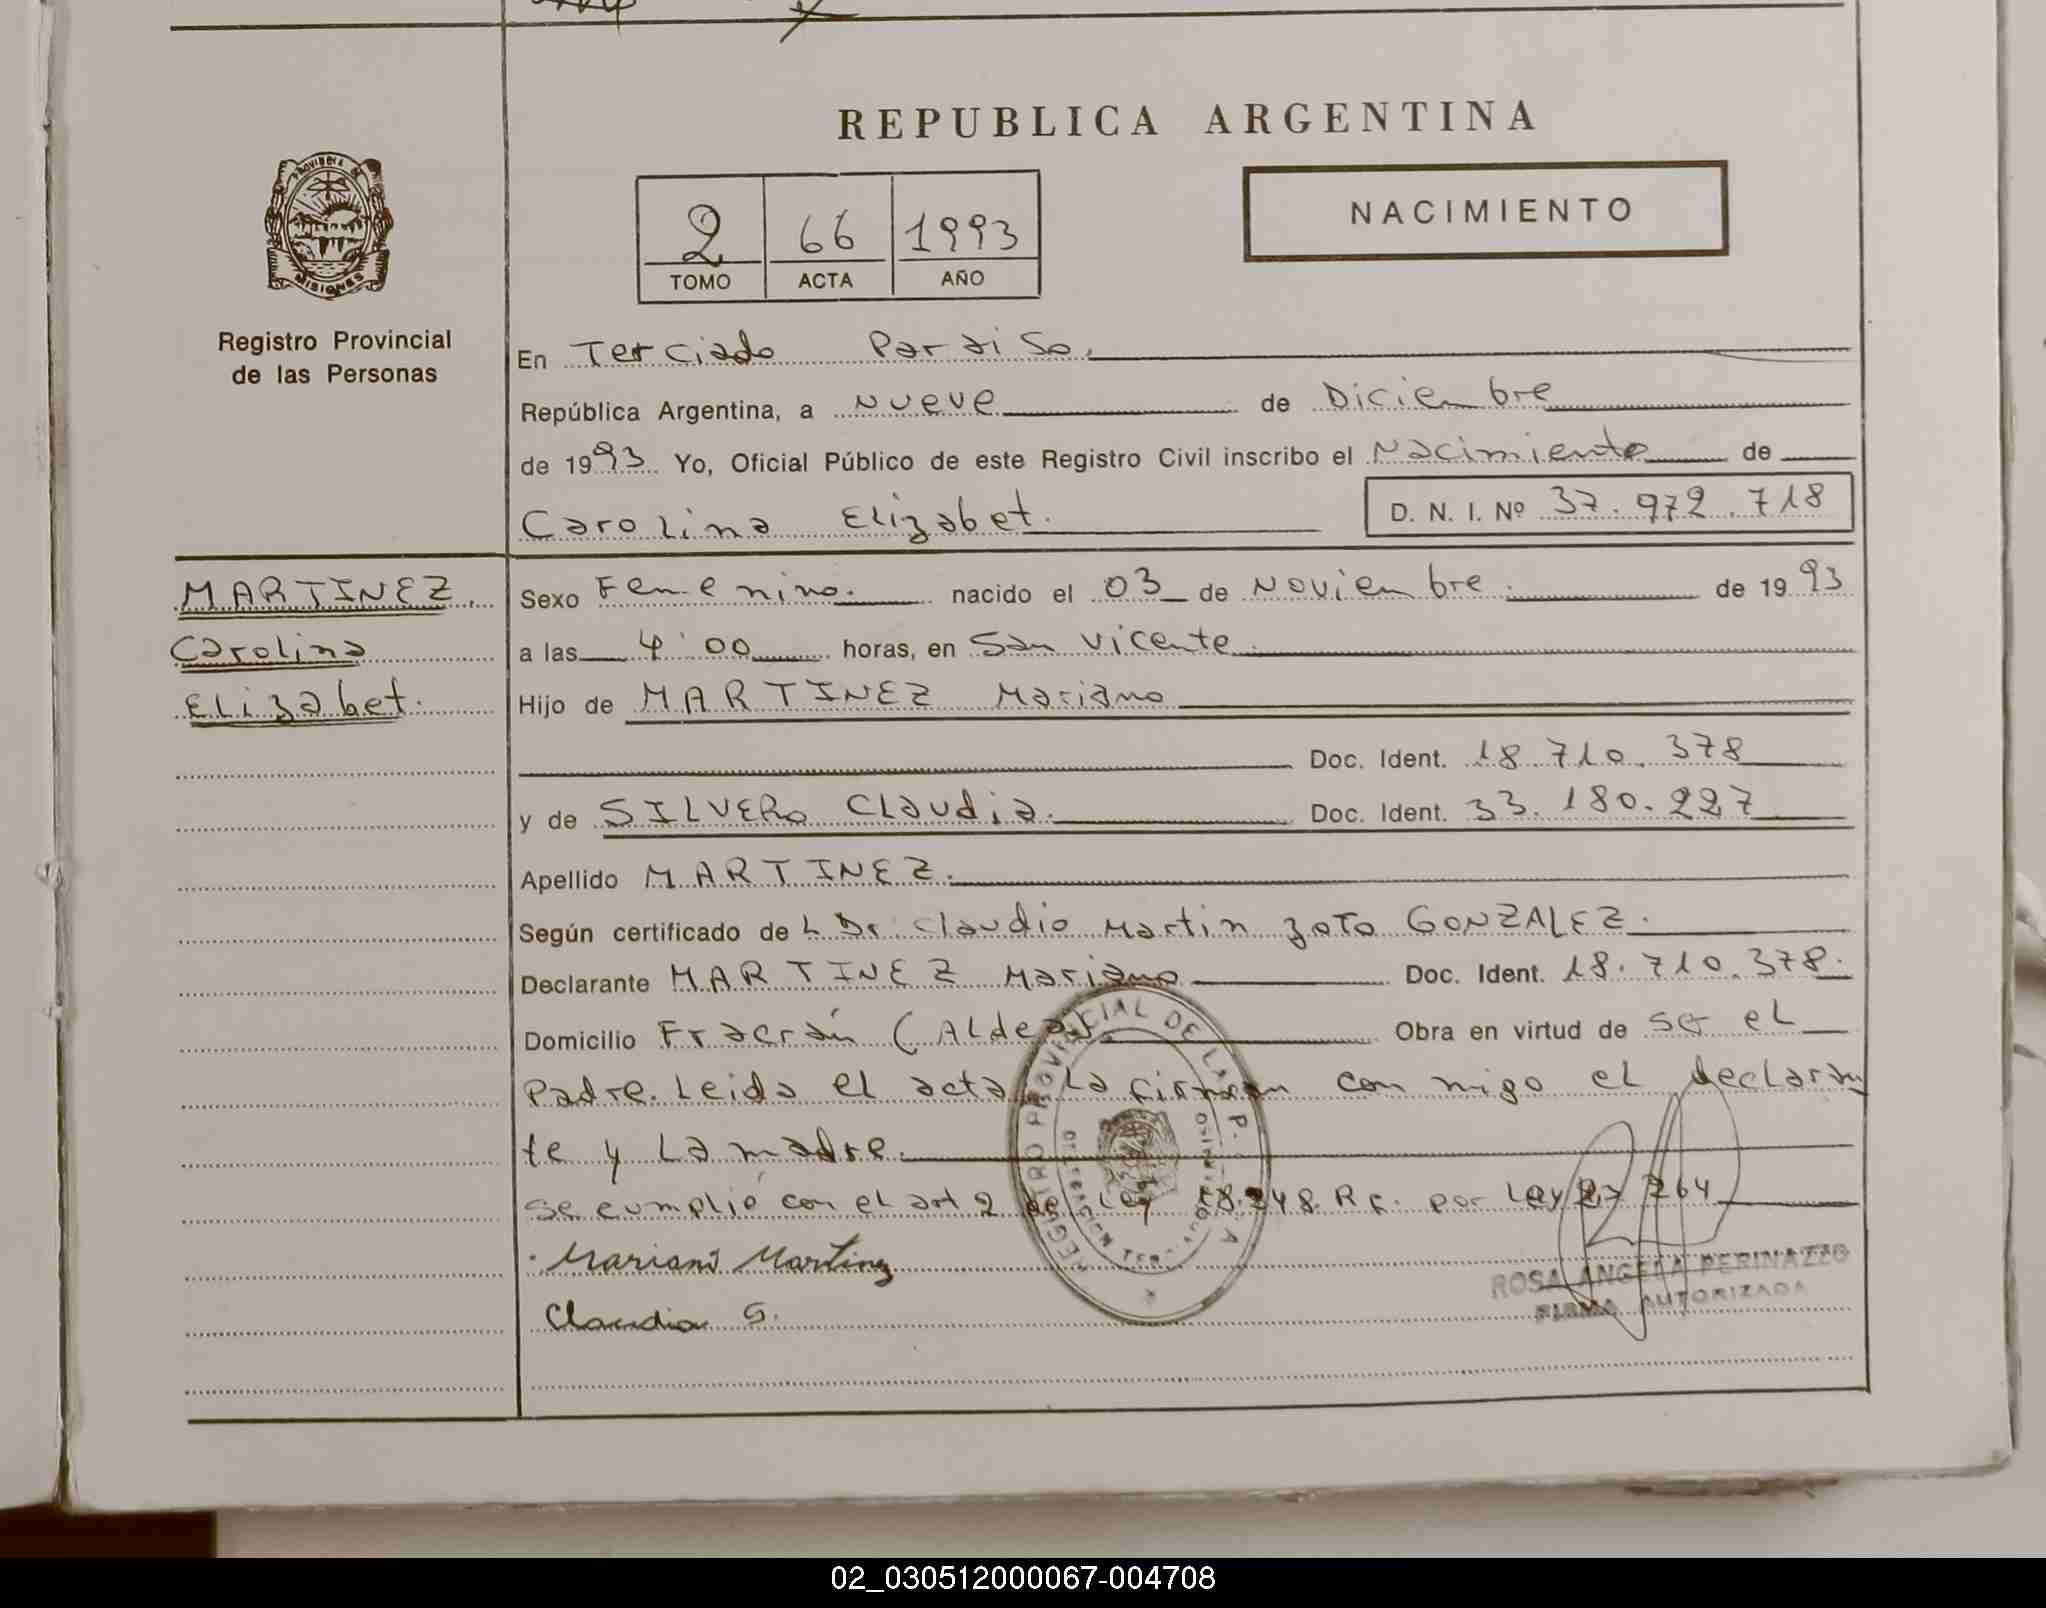 REPUBLICA ARGENTINA
PROVINCIA DE
MISIONES
Registro Provincial
de las Personas
2 66 1993
TOMO ACTA AÑO
NACIMIENTO
En Terciado Paraiso.
República Argentina, a Nueve de Diciembre
de 1993 Yo, Oficial Público de este Registro Civil inscribo el Nacimiento de
Carolina Elizabet.
D. N. I. Nº 37.972.718
MARTINEZ
Carolina
Elizabet.
Sexo Femenino. nacido el 03 de Noviembre. de 1993
a las 4:00 horas, en San Vicente.
Hijo de MARTINEZ Mariano
Doc. Ident. 18.710.378
y de SILVERO Claudia. Doc. Ident. 33.180.227
Apellido MARTINEZ.
Según certificado del Dr. Claudio Martin Zoto GONZALEZ.
Declarante MARTINEZ Mariano Doc. Ident. 18.710.378.
Domicilio Fracrán (Aldea). Obra en virtud de ser el
Padre. Leida el acta La firman con migo el declaran
te y La madre.
Se cumplió con el art 2 de Ley 18.248. por Ley
Mariano Martinez
Claudia S.
REGISTRO PROVINCIAL DE LAS P.
ROSA ANGELA PERINAZZO
FIRMA AUTORIZADA
02_030512000067-004708